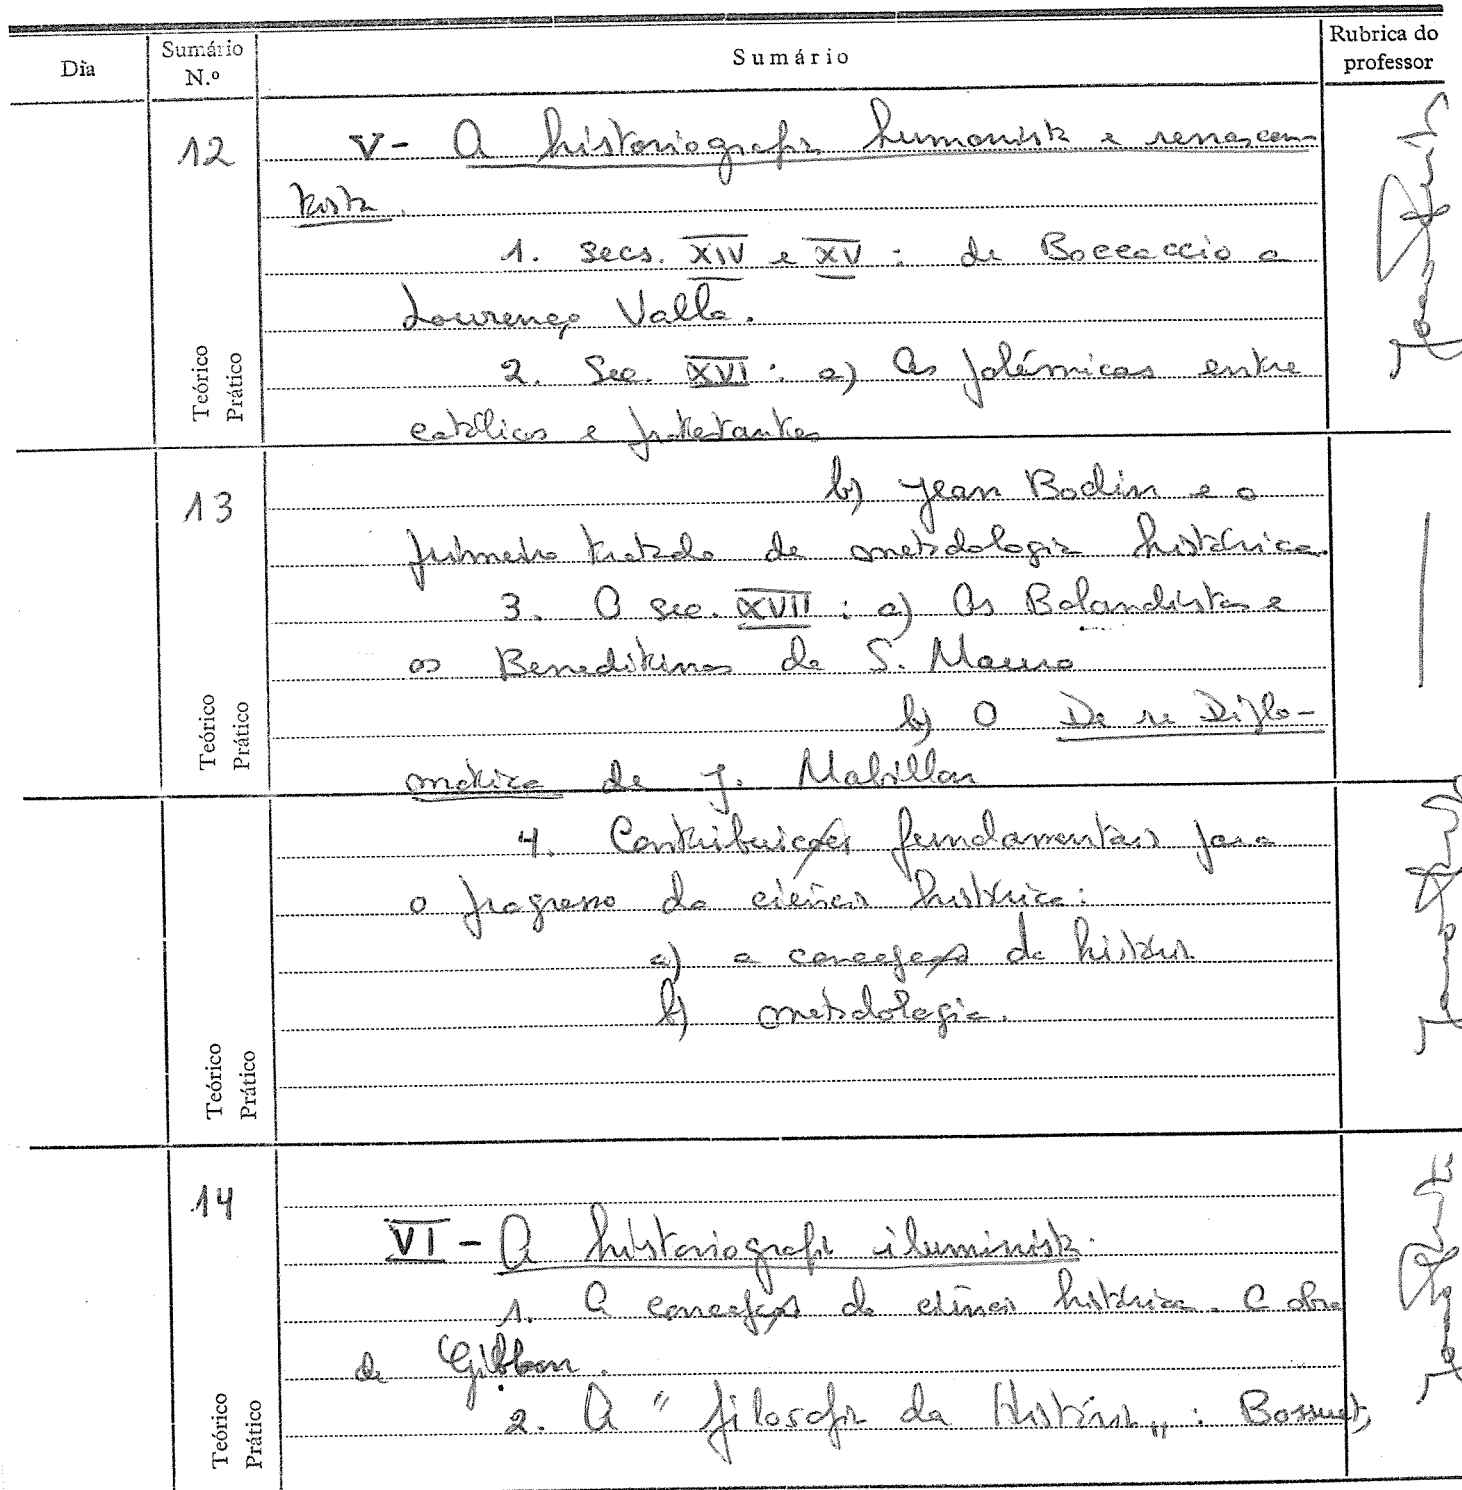 Dia
Sumário N.º
Sumário
Rubrica do professor
12
V - A historiografia humanista e renascen-
tista.
1. secs. XIV e XV : de Boccaccio a
Lourenço Valla.
2. Sec. XVI : a) As polémicas entre
católicos e protestantes
Teórico
Prático
13
b) Jean Bodin e o
primeiro tratado de metodologia histórica.
3. O sec. XVII : a) Os Bolandistas e
os Beneditinos de S. Mauro
b) O De re Diplo-
matica de J. Mabillon
Teórico
Prático
4. Contribuições fundamentais para
o progresso da ciência histórica:
a) a concepção da história
b) metodologia.
Teórico
Prático
14
VI - A historiografia iluminista.
1. A concepção da ciência histórica. A obra
de Gibbon.
2. A "filosofia da História" : Bossuet,
Teórico
Prático